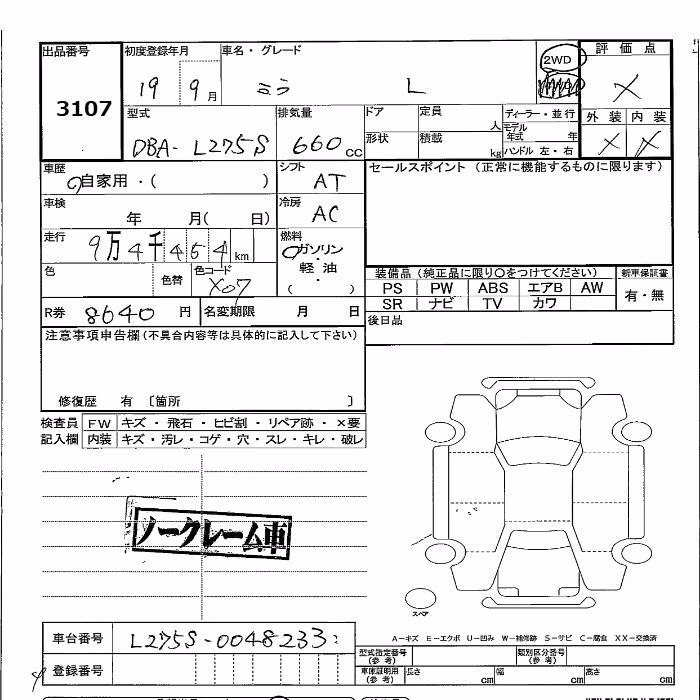 出品番号 初度登録年月 車名・グレード 2WD 評価点
3107 19 9月 ミラ L ×
型式 排気量 ドア 定員 人 ディーラー・並行 外装 内装
DBA- L275S 660cc 形状 積載 kg モデル年式 年 ハンドル 左・右 × ×
車歴 シフト セールスポイント(正常に機能するものに限ります)
自家用・( ) AT
車検 年 月( 日) 冷房 AC
走行 9万4千454km 燃料 ガソリン・軽油・( )
色 色替 色コード X07
装備品(純正品に限り○をつけてください) 新車保証書
PS PW ABS エアB AW 有・無
SR ナビ TV カワ
R券 8640円 名変期限 月 日 後日品
注意事項申告欄(不具合内容等は具体的に記入して下さい)
修復歴 有 〔箇所 〕
検査員 FW キズ・飛石・ヒビ割・リペア跡・×要
記入欄 内装 キズ・汚レ・コゲ・穴・スレ・キレ・破レ
ノークレーム車
スペア
A-キズ E-エクボ U-凹み W-補修跡 S-サビ C-腐食 XX-交換済
車台番号 L275S-0048233
型式指定番号(参考) 類別区分番号(参考)
登録番号 車庫証明用(参考) 長さ cm 幅 cm 高さ cm